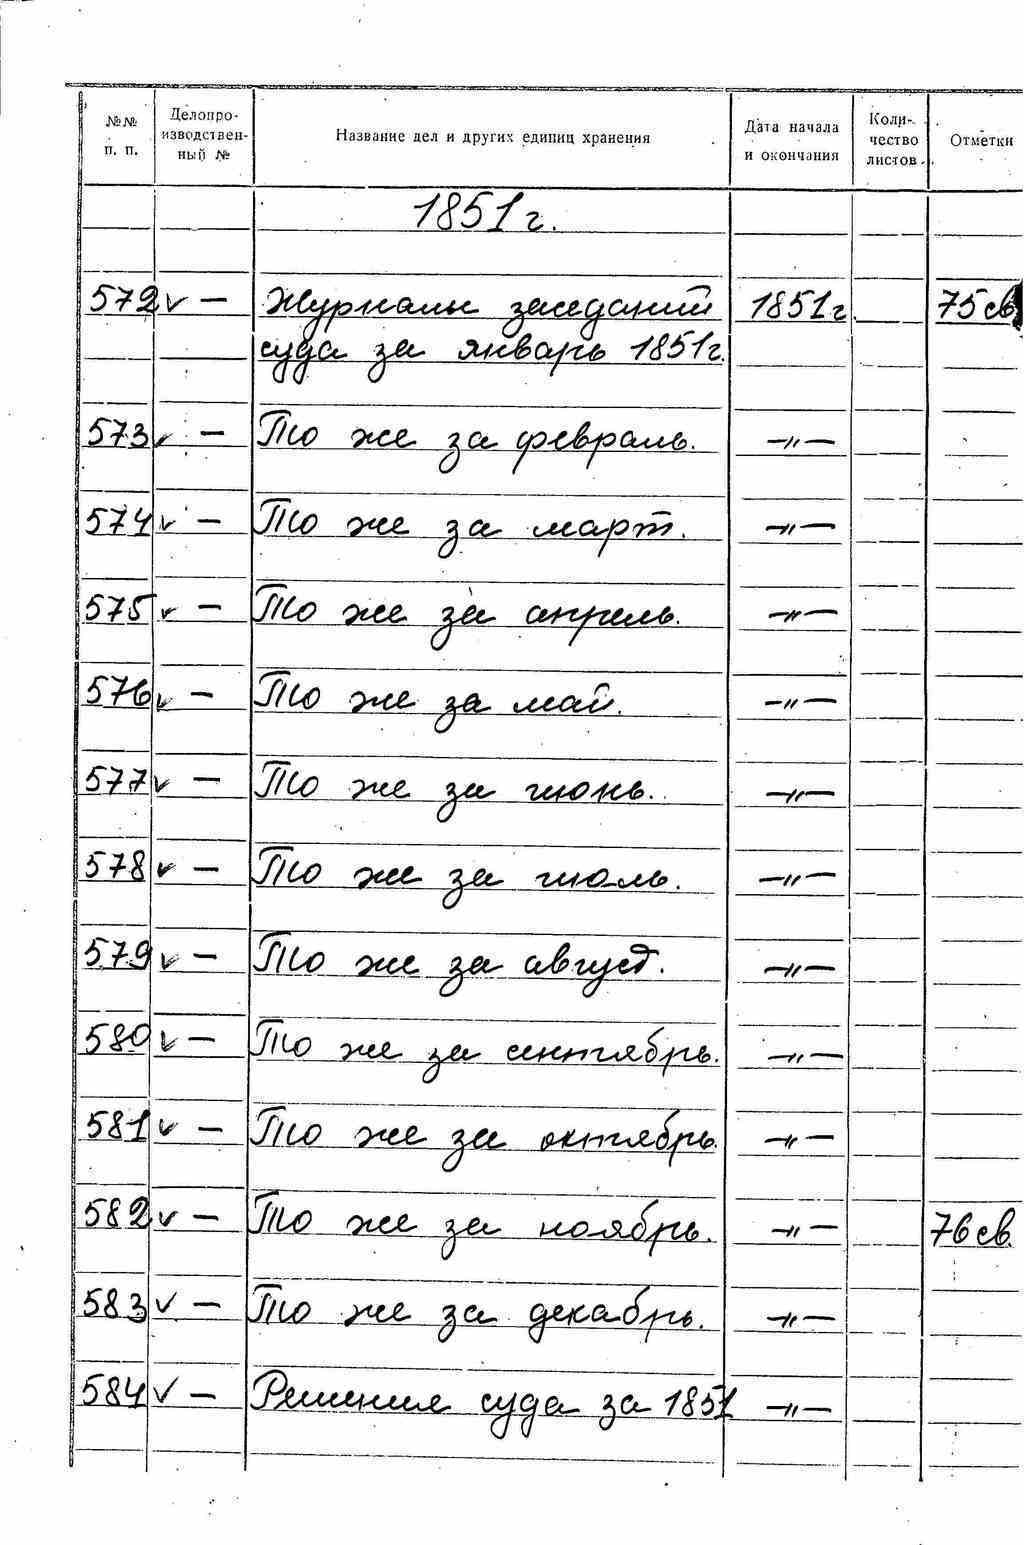 №№ п. п. Делопроизводственный № Название дел и других единиц хранения Дата начала и окончания Количество листов Отметки
1851 г.
572 ✓ — Журналы заседаний 1851 г. 75 св
суда за январь 1851 г.
573 ✓ — То же за февраль. —„—
574 ✓ — То же за март. —„—
575 ✓ — То же за апрель. —„—
576 ✓ — То же за май. —„—
577 ✓ — То же за июнь. —„—
578 ✓ — То же за июль. —„—
579 ✓ — То же за август. —„—
580 ✓ — То же за сентябрь. —„—
581 ✓ — То же за октябрь. —„—
582 ✓ — То же за ноябрь. —„— 76 св.
583 ✓ — То же за декабрь. —„—
584 ✓ — Решения суда за 1851 —„—